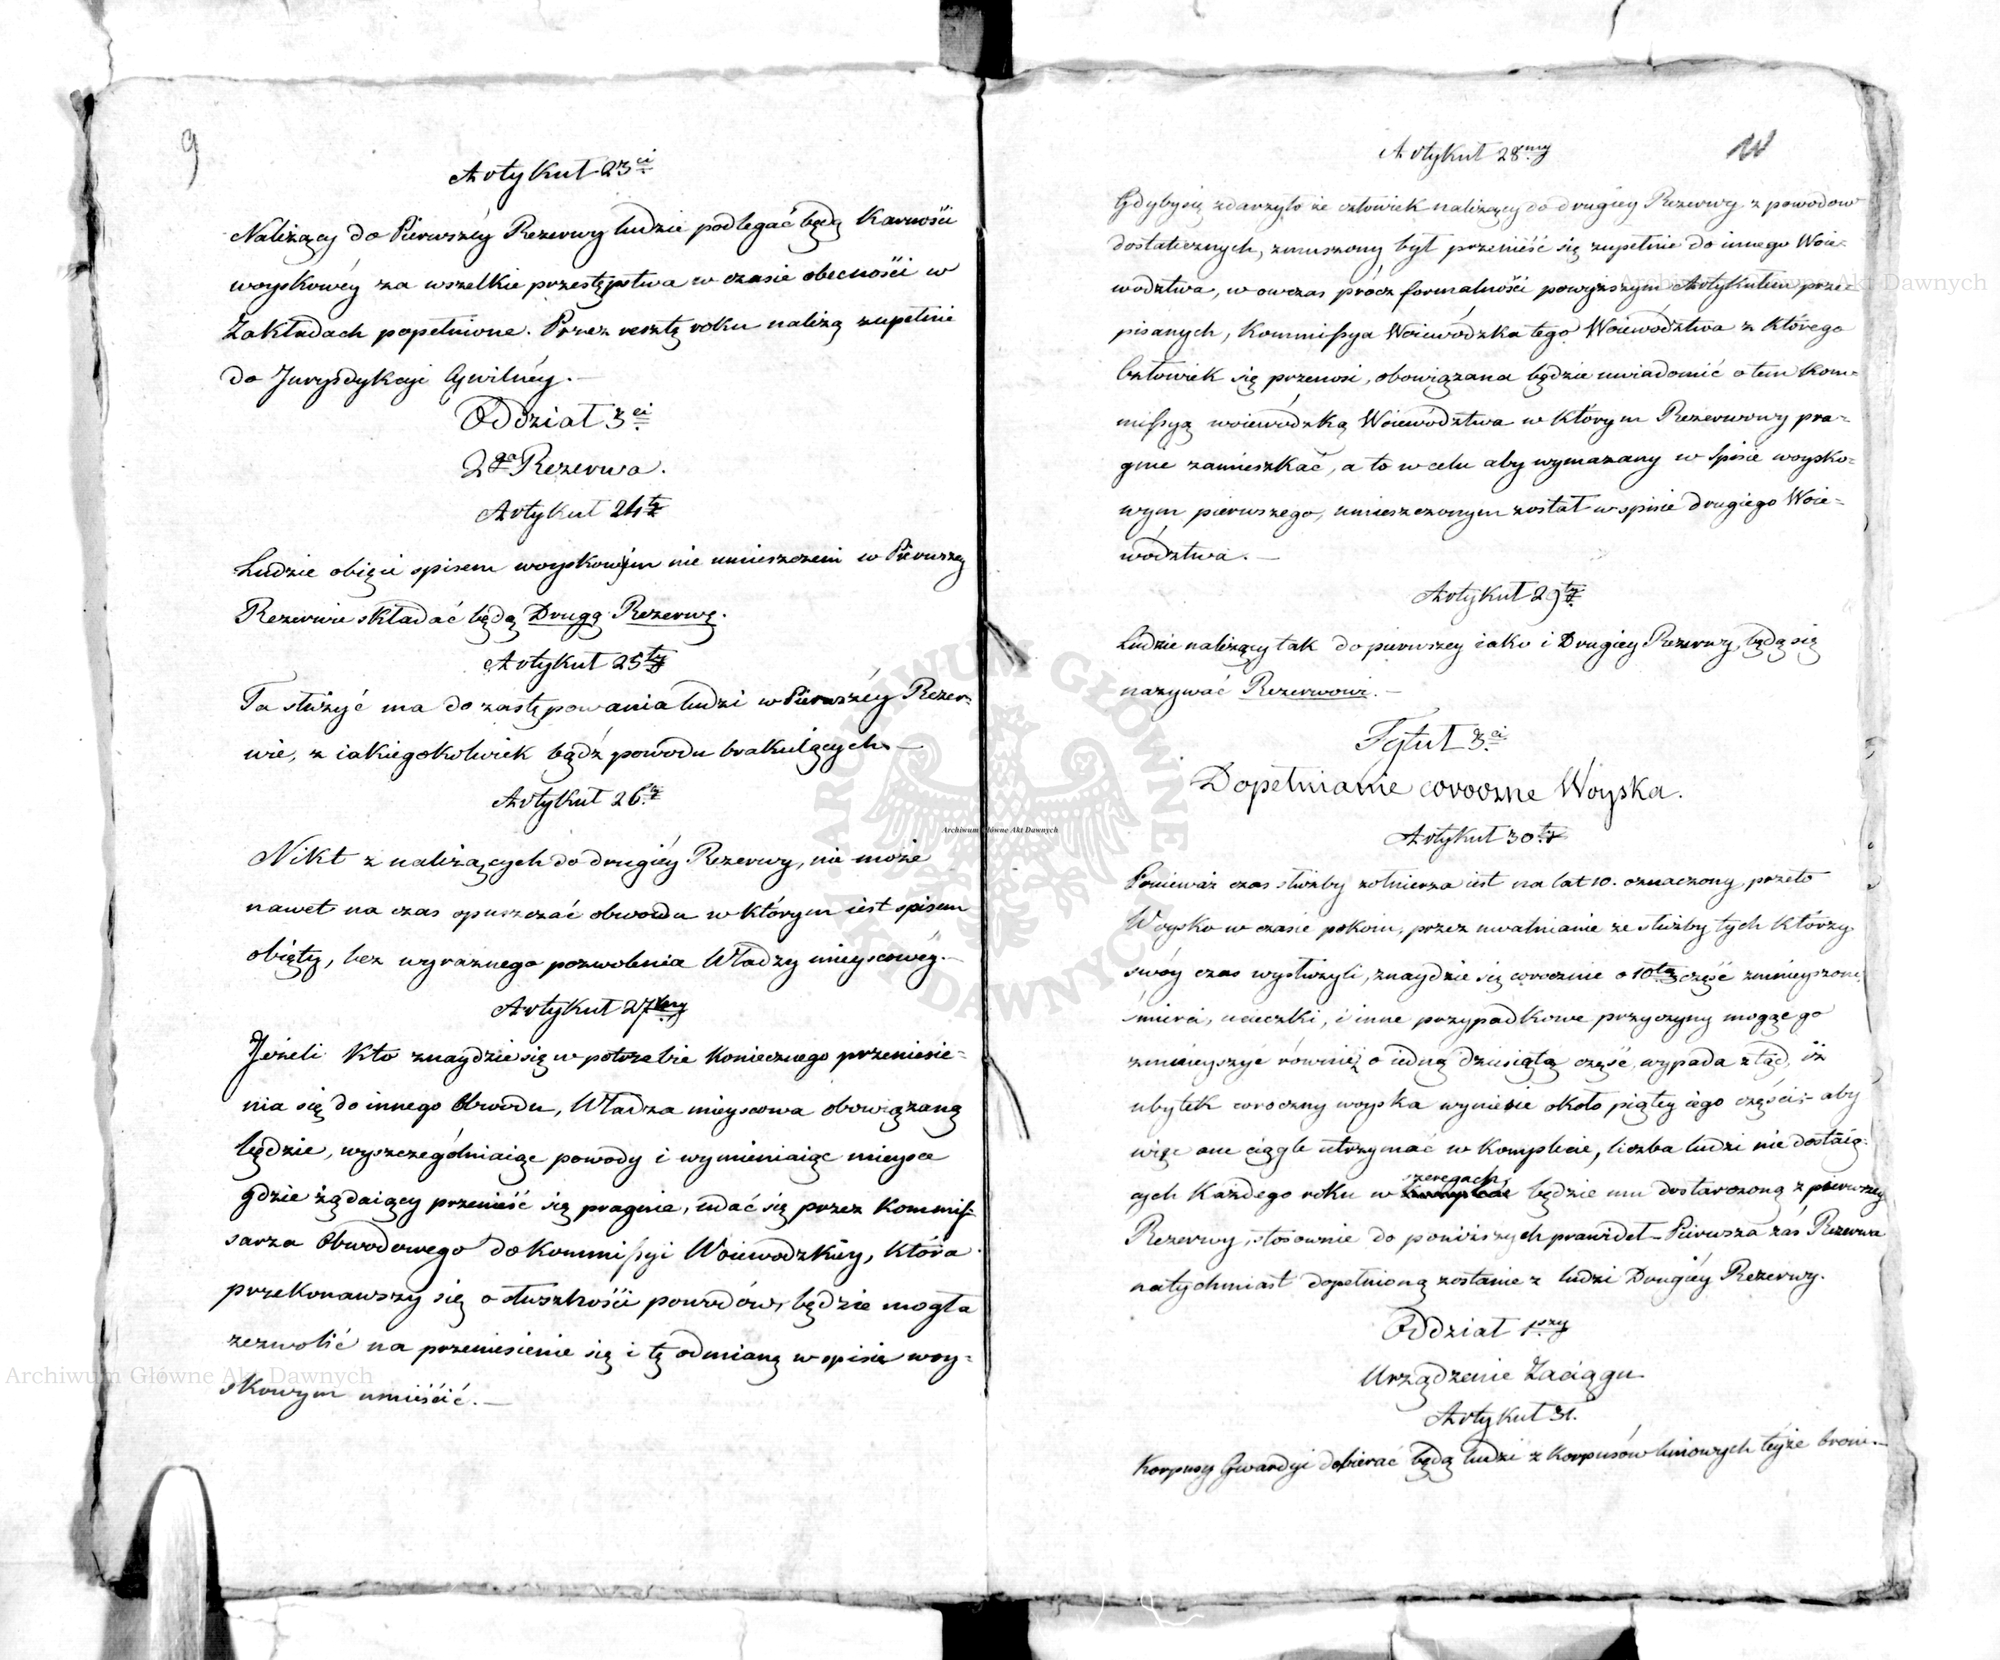 9
Artykuł 23ci
Należący do Pierwszéy Rezerwy ludzie podlegać będą Karności
woyskowéy za wszelkie przestępstwa w czasie obecności w
Zakładach popełnione. Przez resztę roku należą zupełnie
do Jurysdykcyi Cywilnéy.—
Oddział 3ci
2ga Rezerwa.
Artykuł 24ty
Ludzie obięci spisem woyskowym nie umieszczeni w Pierwszey
Rezerwie składać będą Drugą Rezerwę.
Artykuł 25ty
Ta służyć ma do zastępowania ludzi w Pierwszéy Rezer-
wie, z iakiegokolwiek bądź powodu brakuiących.—
Artykuł 26ty
Nikt z należących do drugiéy Rezerwy, nie może
nawet na czas opuszczać obwodu w którym iest spisem
obięty, bez wyraznego pozwolenia Władzy mieyscowéy.—
Artykuł 27my
Jeżeli kto znaydzie się w potrzebie koniecznego przeniesie-
nia się do innego Obwodu, Władza mieyscowa obowiązaną
będzie, wyszczególniaiąc powody i wymieniaiąc mieysce
gdzie żądaiący przenieść się pragnie, udać się przez Kommis-
sarza Obwodowego do Kommissyi Woiewodzkiéy, która
przekonawszy się o słuszności powodów, będzie mogła
zezwolić na przeniesienie się i tę odmianę w spisie woy-
skowym umieścić.—
Artykuł 28my
Gdyby się zdarzyło że człowiek należący do drugiéy Rezerwy z powodów
dostatecznych, zmuszony był przenieść się zupełnie do innego Woie-
wodztwa, w owczas prócz formalności powyższym Artykułem prze-
pisanych, Kommissya Woiewódzka tego Woiewództwa z którego
Człowiek się przenosi, obowiązana będzie uwiadomić o tem Kom-
missyą woiewódzką Woiewództwa w którym Rezerwowy pra-
gnie zamieszkać, a to w celu aby wymazany w Spisie woysko-
wym pierwszego, umieszczonym został w spisie drugiego Woie-
wództwa.—
Artykuł 29ty
Ludzie należący tak do pierwszey iako i Drugiey Rezerwy, będą się
nazywać Rezerwowi.—
Tytuł 3ci
Dopełnianie coroczne Woyska.
Artykuł 30ty
Ponieważ czas służby żołnierza iest na lat 10. oznaczony, przeto
Woysko w czasie pokoiu, przez uwalnianie ze służby tych którzy
swóy czas wysłużyli, znaydzie się corocznie o 10tą część zmnieyszone
śmierci, ucieczki, i inne przypadkowe przyczyny mogąc go
zmnieyszyć równiez o iedną dziesiątą część, wypada ztąd, iż
ubytek coroczny woyska wyniesie około piątey iego części;- aby
więc one ciągle utrzymać w Komplecie, liczba ludzi nie dostaią-
szeregach
cych każdego roku w będzie mu dostarczoną z pierwszey
Rezerwy, stosownie do poniższych prawideł – Pierwsza zaś Rezerwa
natychmiast dopełnioną zostanie z ludzi Drugiéy Rezerwy.
Oddział 1szy
Urządzenie Zaciągu
Artykuł 31.
Korpusy Gwardyi dobierać będą ludzi z Korpusów liniowych teyże broni.—
Archiwum Główne Akt Dawnych
Archiwum Główne Akt Dawnych
Archiwum Główne Akt Dawnych
ARCHIWUM GŁÓWNE AKT DAWNYCH